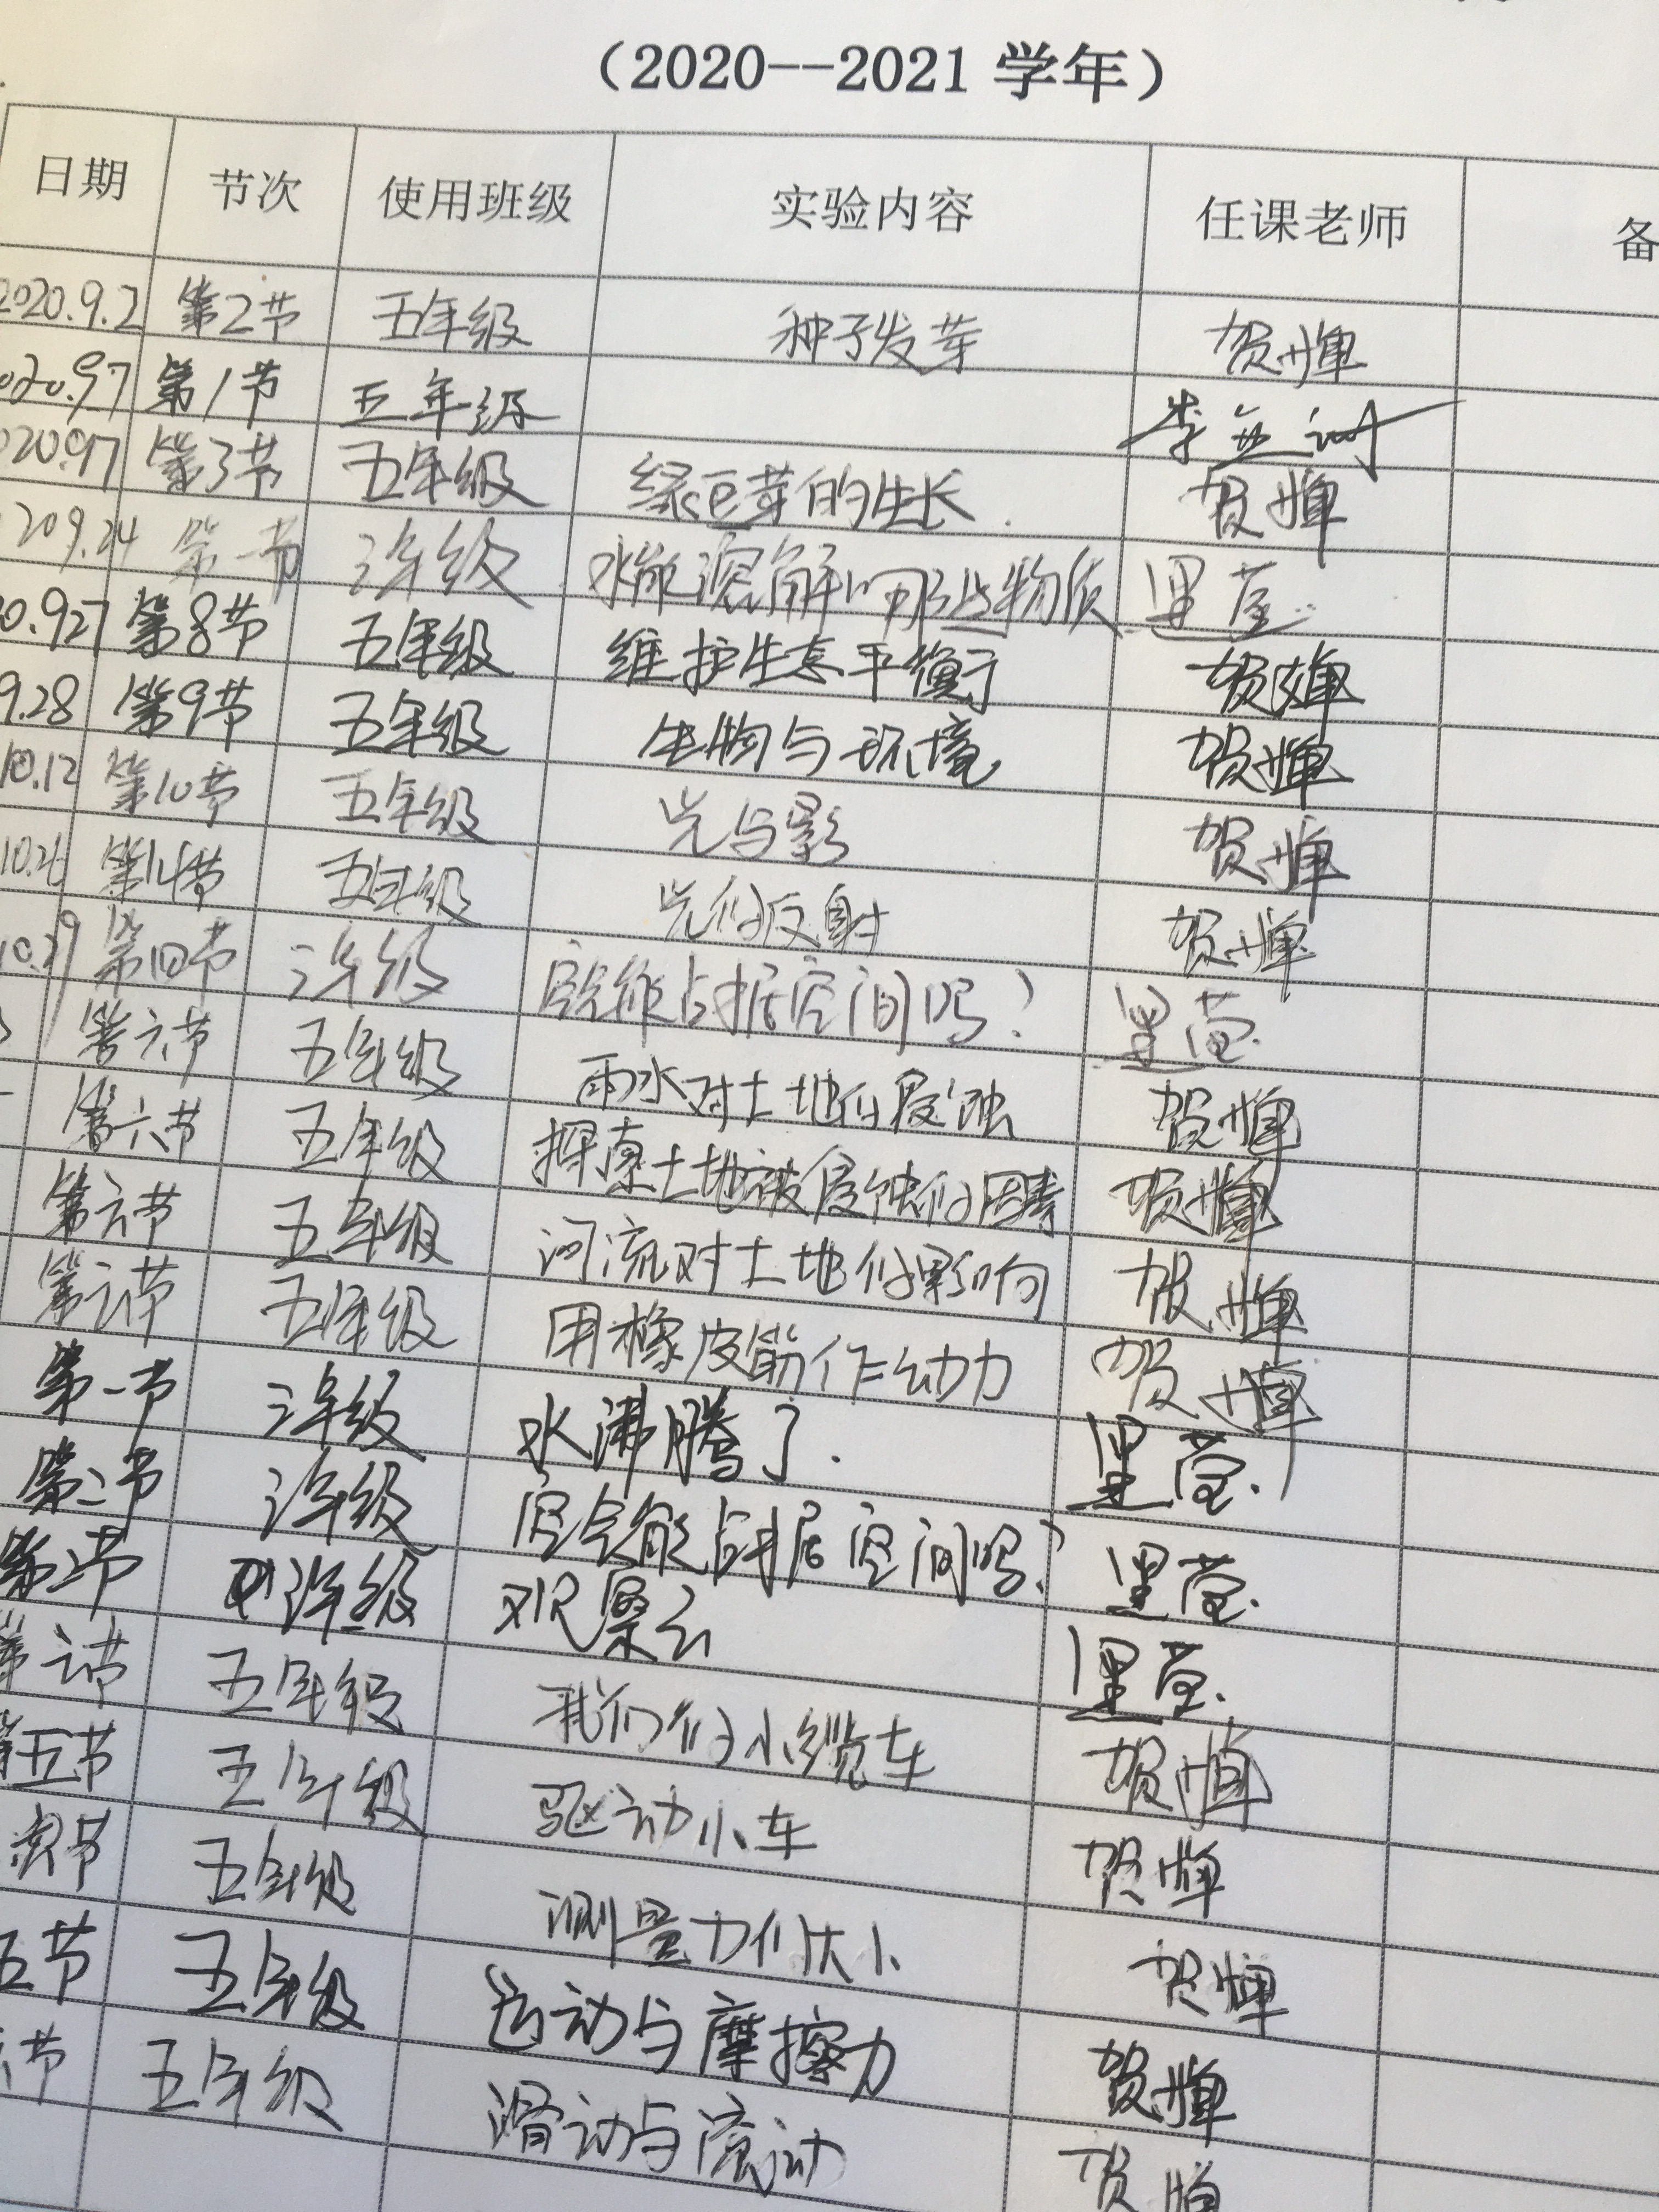 （2020--2021 学年）
日期 节次 使用班级 实验内容 任课老师 备
2020.9.2 第2节 五年级 种子发芽 贺辉
020.9.7 第1节 五年级 李
020.9.7 第3节 五年级 绿豆芽的生长. 贺辉
20 9.24 第一节 三年级 水能溶解哪些物质
0.9.27 第8节 五年级 维护生态平衡 贺辉
9.28 第9节 五年级 生物与环境 贺辉
10.12 第10节 五年级 光与影 贺辉
10.26 第14节 五年级 光的反射 贺辉
10.29 第四节 三年级 空气能占据空间吗?
第六节 五年级 雨水对土地的侵蚀 贺辉
第六节 五年级 探索土地被侵蚀的因素 贺辉
第六节 五年级 河流对土地的影响 贺辉
第六节 五年级 用橡皮筋作动力 贺辉
第一节 三年级 水沸腾了.
第二节 三年级 空气能占据空间吗?
第二节 三年级 观察云
第六节 五年级 我们的小缆车 贺辉
第五节 五年级 驱动小车 贺辉
节 五年级 测量力的大小 贺辉
五节 五年级 运动与摩擦力 贺辉
节 五年级 滑动与滚动 贺辉